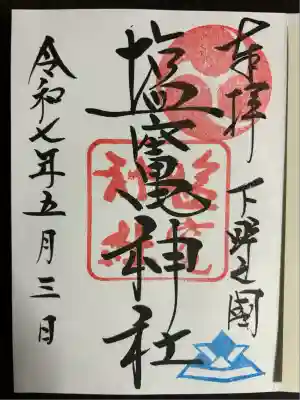 奉拝
下野之國
塩竈神社
令和七年五月三日